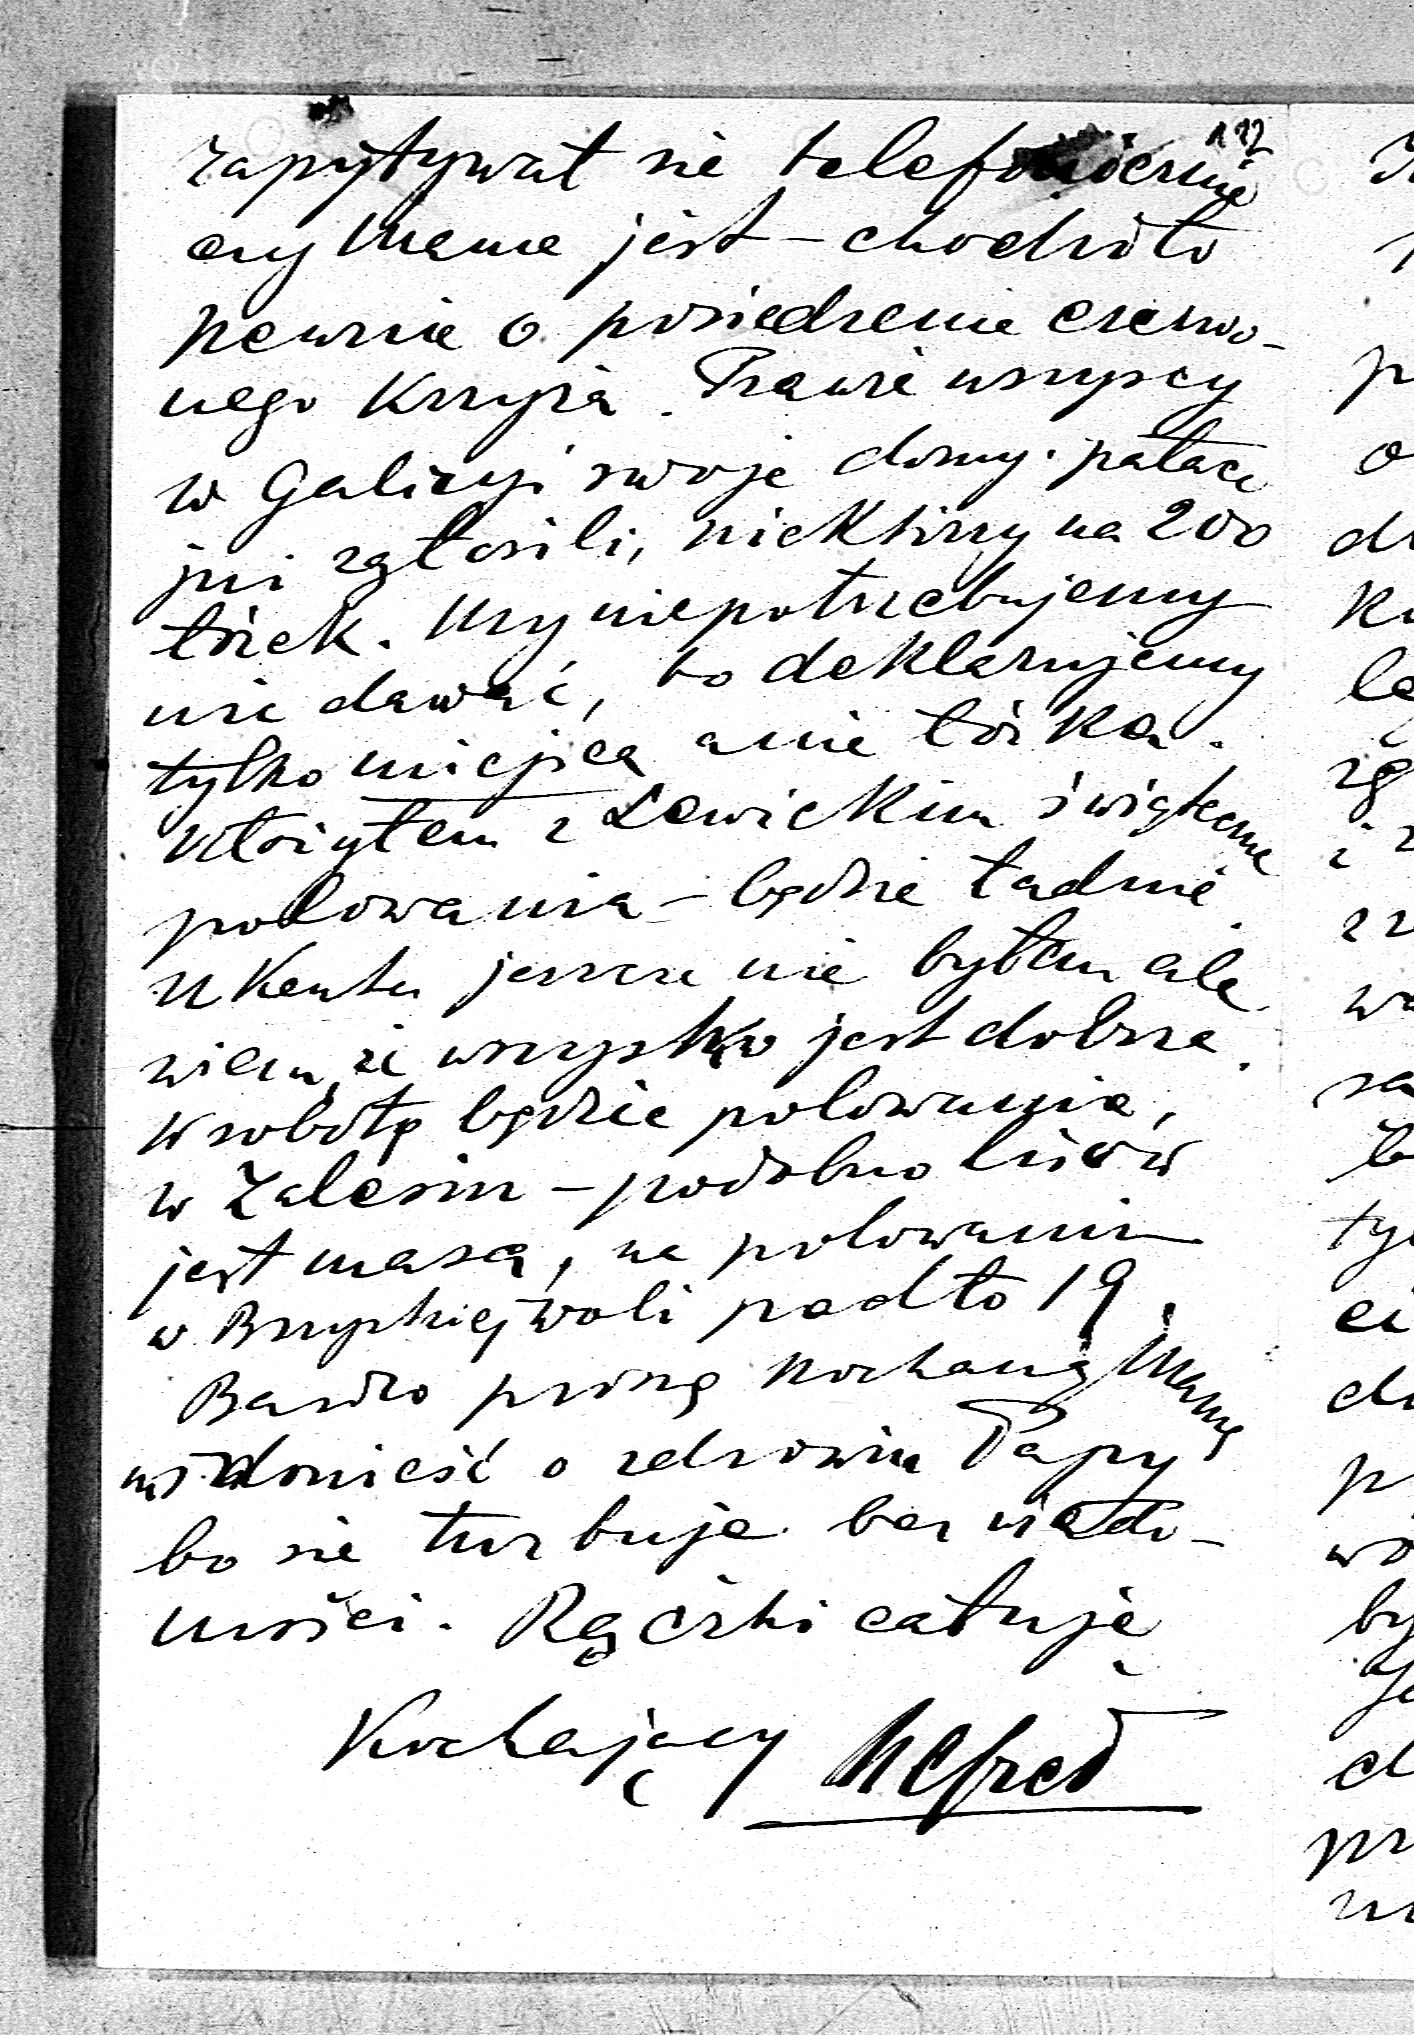 122
zapytywał sie telefonicznie
czy Mama jest – chodziło
pewnie o posiedzenie czerwo-
nego Krzyża. Prawie wszyscy
w Galicyi swoje domy i pałace
już zgłosili, niektórzy na 200
łóżek. My nie potrzebujemy
nic dawać, bo deklarujemy
tylko miejsca a nie łóżka.
Ułożyłem z Lewickim świąteczne
polowania – będzie ładnie.
U Kentu jeszcze nie byłem ale
wiem, że wszystko jest dobrze.
W sobotę będzie polowanie,
w Zalesiu – podobno lisów
jest masa, na polowaniu
w Brzyskiej woli padło 19.
Bardzo proszę Kochaną Mamę
mi donieść o zdrowiu Papy
bo sie turbuje bez wiado-
mości. Rączki całuję
Kochający Alfred